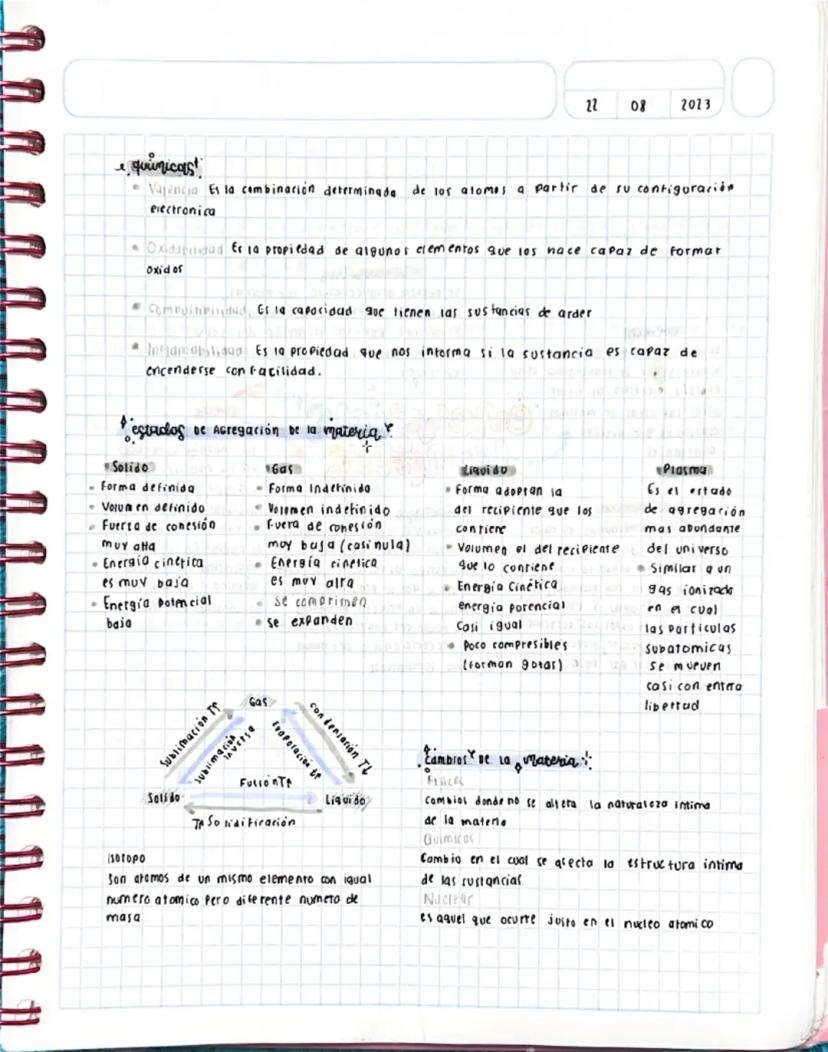 22 08 2023
químicas
Valencia Es la combinación determinada de los atomos a partir de su configuración
electronica
Oxidabilidad Es la propiedad de algunos elementos que los hace capaz de formar
oxidos
Combustibilidad Es la capacidad que tienen las sustancias de arder
Inflamabilidad Es la propiedad que nos informa si la sustancia es capaz de
encenderse con facilidad.
estados DE AGREGACIÓN DE la materia
Solido
Forma definida
Volumen definido
Fuerza de cohesión
muy alta
Energía cinetica
es muy baja
Energía potencial
baja
Gas
Forma Indefinida
Volumen indefinido
Fuera de cohesión
muy baja (casi nula)
Energía cinetica
es muy alta
se comprimen
se expanden
Liquido
Forma adoptan la
del recipiente que los
contiene
Volumen el del recipiente
que lo contiene
Energía Cinética
energia potencial
Casi igual
Poco compresibles
(forman gotas)
Plasma
Es el estado
de agregación
mas abundante
del universo
Similar a un
gas ionizado
en el cual
las particulas
subatomicas
se mueven
casi con entera
libertad
Gas
Sublimación T↑
Sublimación
inversa
Evaporación T↑
Condensación T↓
Fusión T↑
Solido
Liquido
Solidificación
Isotopo
Son atomos de un mismo elemento con igual
numero atomico pero diferente numero de
masa
Cambios DE LA Materia
Físicos
Cambios donde no se altera la naturaleza intima
de la materia
Químicos
Cambio en el cual se afecta la estructura intima
de las sustancias
Nuclear
es aquel que ocurre justo en el nucleo atomico